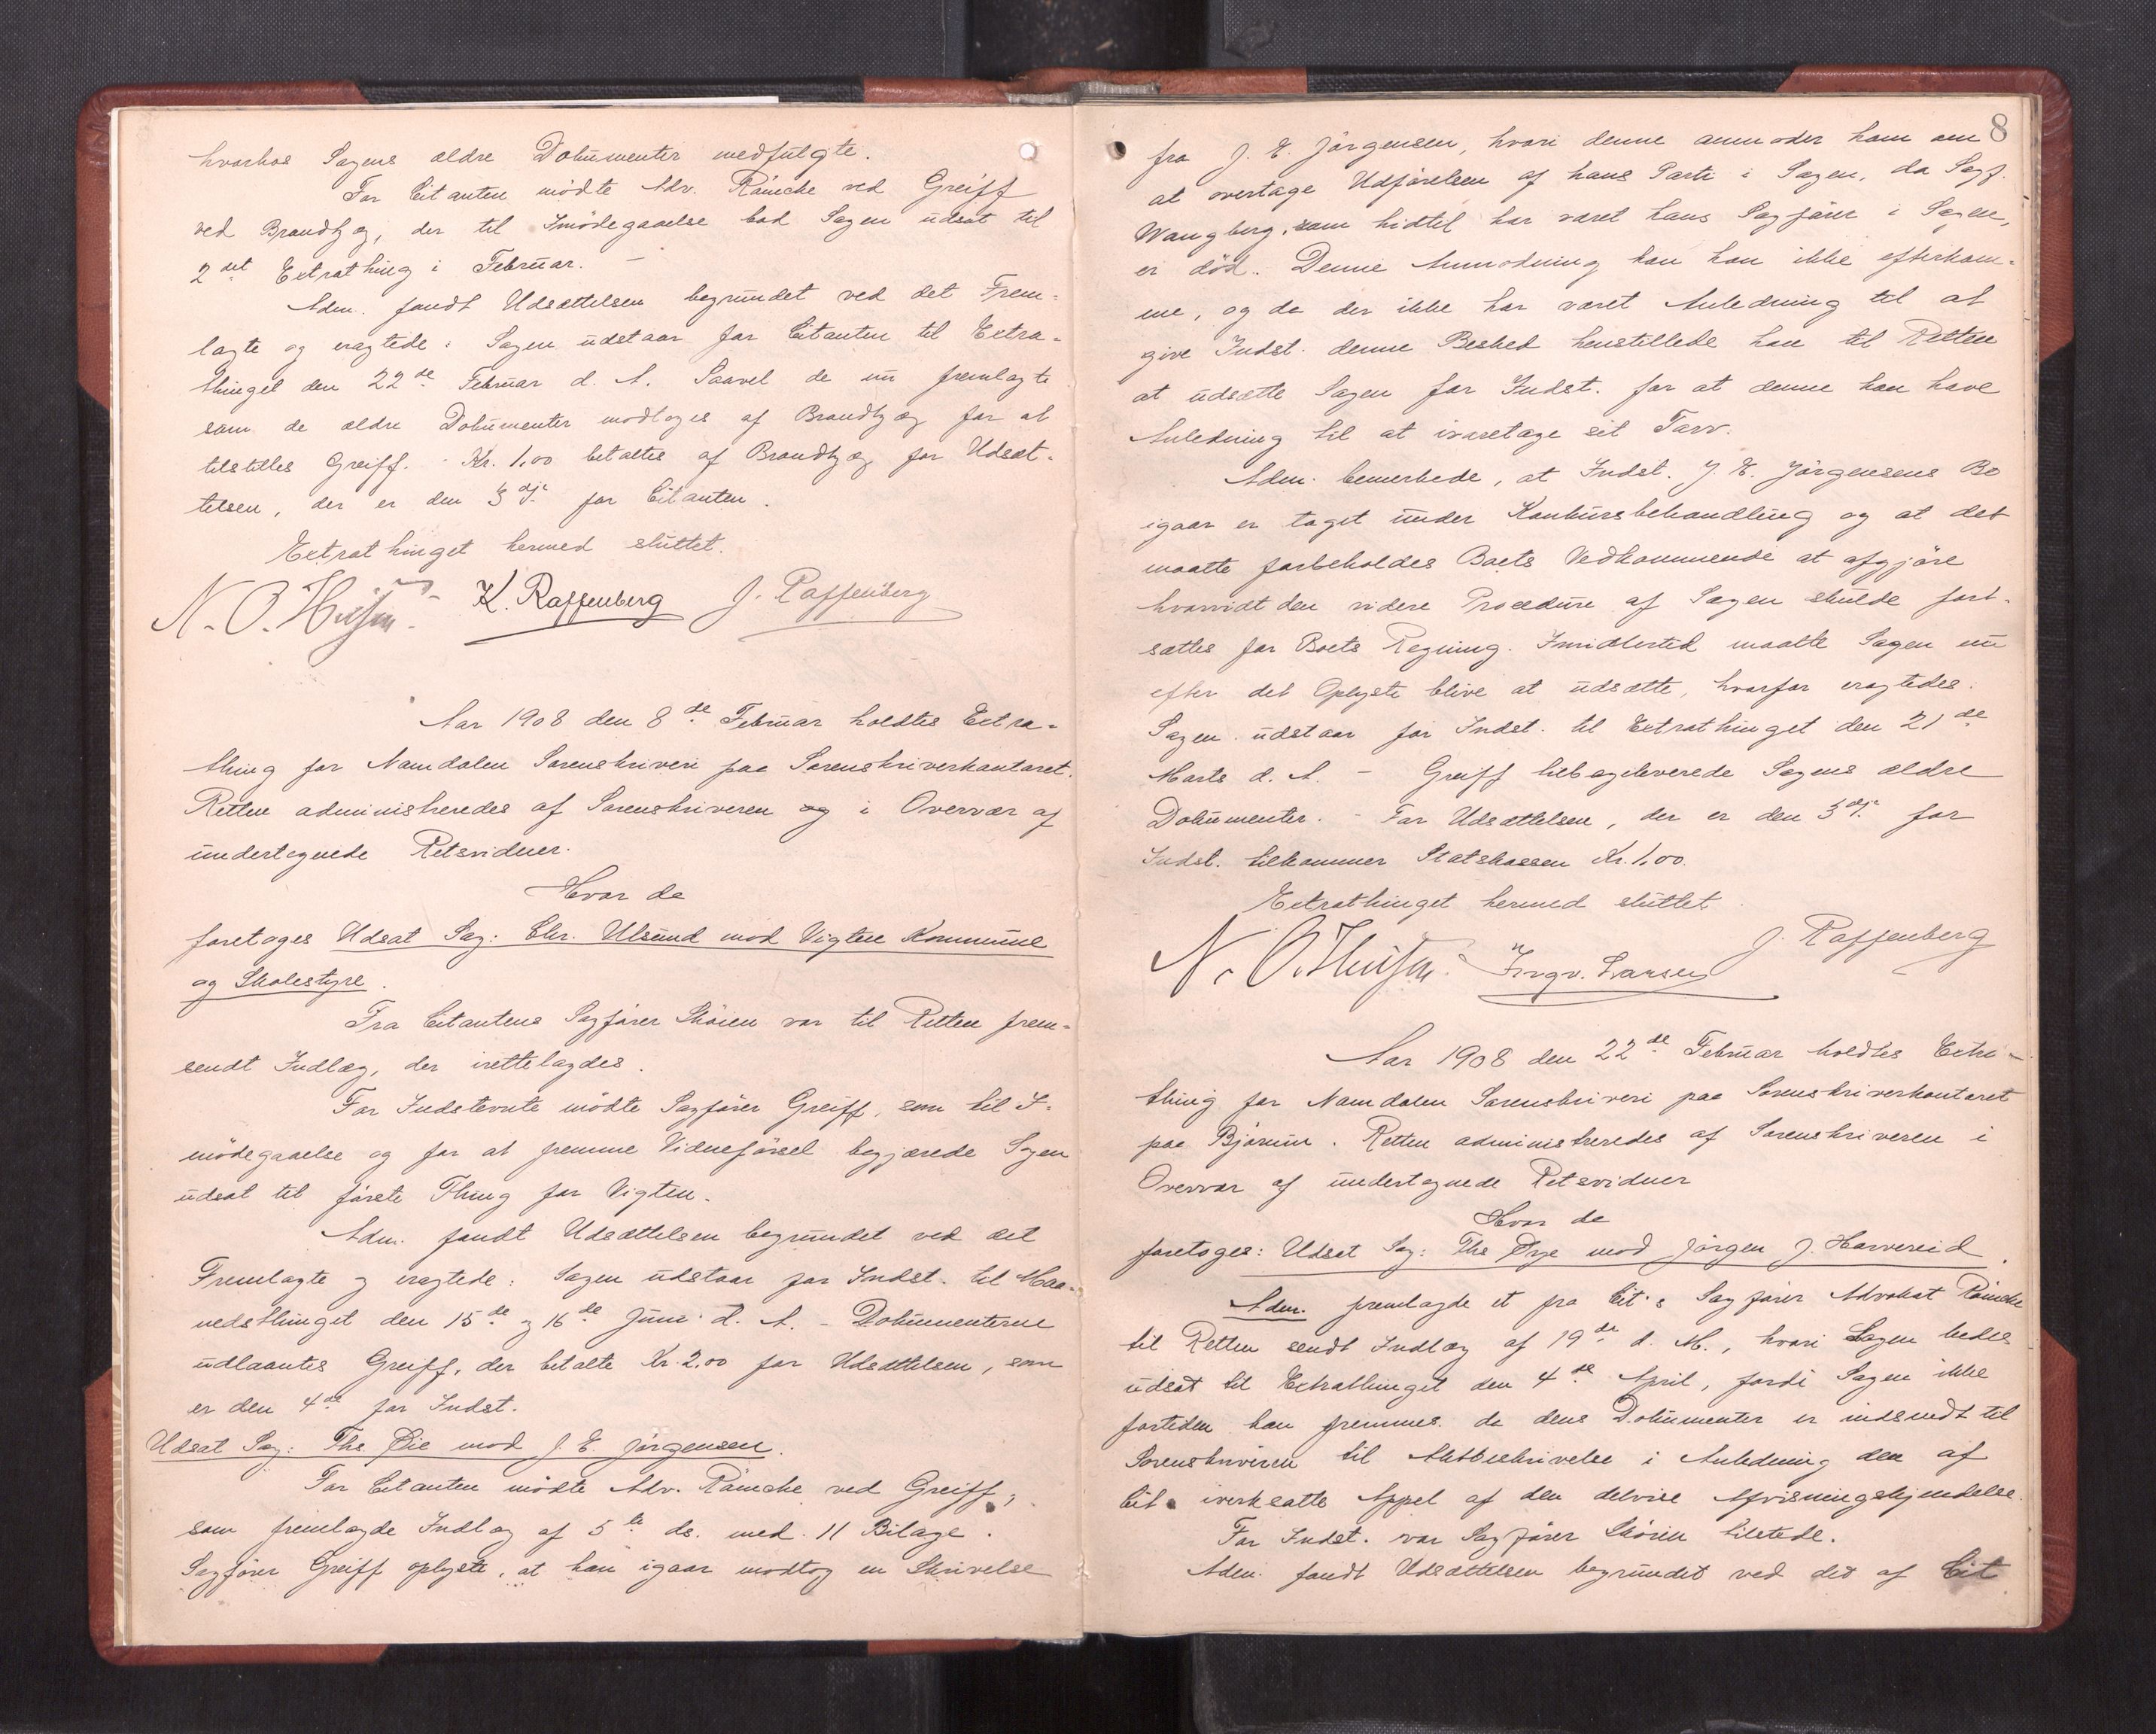 hvorhos Sagens ældre Dokumenter medfulgte.
For Citanten mödte Adv. Räneke ved Greiff
ved Brandtzæg, der til Imödegaaelse bad Sagen udsat til
2det Extrathing i Februar. –
Adm. fandt Udsættelsen begrundet ved det Frem-
lagte og eragtede: Sagen udstaar for Citanten til Extra-
thinget den 22de Februar d. A. Saavel de nu fremlagte
som de ældre Dokumenter modtoges af Brandtzæg for at
tilstilles Greiff. - Kr. 1,00 betaltes af Brandtzæg for Udsæt-
telsen, der er den 3dje for Citanten.
Extrathinget hermed sluttet.
K. Raffenberg J. Raffenberg
Aar 1908 den 8de Februar holdtes Extra-
thing for Namdalen Sorenskriveri paa Sorenskriverkontoret.
Retten administreredes af Sorenskriveren og i Overvær af
undertegnede Retsvidner.
Hvor da
foretoges Udsat Sag: Chr. Ulsund mod Vigten Kommune
og Skolestyre.
Fra Citantens Sagförer Sköien var til Retten frem-
sendt Indlæg, der irettelagdes.
For Indstevnte mödte Sagförer Greiff, som til I-
mödegaaelse og for at fremme Vidneförsel begjærede Sagen
udsat til förste Thing for Vigten.
Adm. fandt Udsættelsen begrundet ved det
Fremlagte og eragtede: Sagen udstaar for Indst. til Maa-
nedsthinget den 15de og 16de Juni d. A. - Dokumenterne
udlaantes Greiff, der betalte Kr. 2.00 for Udsættelsen, som
er den 4de for Indst.
Udsat Sag: Ths Øie mod J. E. Jörgensen.
For Citanten mödte Adv. Räneke ved Greiff,
som fremlagde Indlæg af 5te ds. med 11 Bilage.
Sagförer Greiff oplyste, at han igaar modtog en Skrivelse
8
fra J. E. Jörgensen, hvori denne anmoder ham om
at overtage Udförelsen af hans Parti i Sagen, da Sagf.
Wangberg, som hidtil har været hans Sagförer i Sagen,
er död. Denne Anmodning kan han ikke efterkom-
me, og da der ikke har været Anledning til at
give Indst. denne Besked henstillede han til Retten
at udsætte Sagen for Indst. for at denne kan have
Anledning til at ivaretage sit Tarv.
Adm. bemerkede, at Indst. J. E. Jörgensens Bo
igaar er taget under Konkursbehandling og at det
maatte forbeholdes Boets Vedkommende at afgjöre
hvorvidt den videre Procedure af Sagen skulde fort-
sættes for Boets Regning. Imidlertid maatte Sagen nu
efter det Oplyste blive at udsætte, hvorfor eragtedes:
Sagen udstaar for Indst. til Extrathinget den 21de
Marts d. A. - Greiff tilbageleverede Sagens ældre
Dokumenter. - For Udsættelsen, der er den 3dje for
Indst. tilkommer Statskassen Kr. 1,00.
Extrathinget hermed sluttet
Ingv. Larsen J. Raffenberg
Aar 1908 den 22de Februar holdtes Extra-
thing for Namdalen Sorenskriveri paa Sorenskriverkontoret
paa Björum. Retten administreredes af Sorenskriveren i
Overvær af undertegnede Retsvidner
Hvor da
foretoges: Udsat Sag: Ths Øye mod Jörgen J. Harvereid.
Adm. fremlagde et fra Cit.s Sagförer Advokat Räneke
til Retten sendt Indlæg af 19de d. M., hvori Sagen bedes
udsat til Extrathinget den 4de April, fordi Sagen ikke
fortiden kan fremmes da dens Dokumenter er indsendt til
Sorenskriveren til Aktbeskrivelse i Anledning den af
Cit. iverksatte Appel af den delvise Afvisningskjendelse.
For Indst. var Sagförer Sköien tilstede.
Adm. fandt Udsættelsen begrundet ved det af Cit